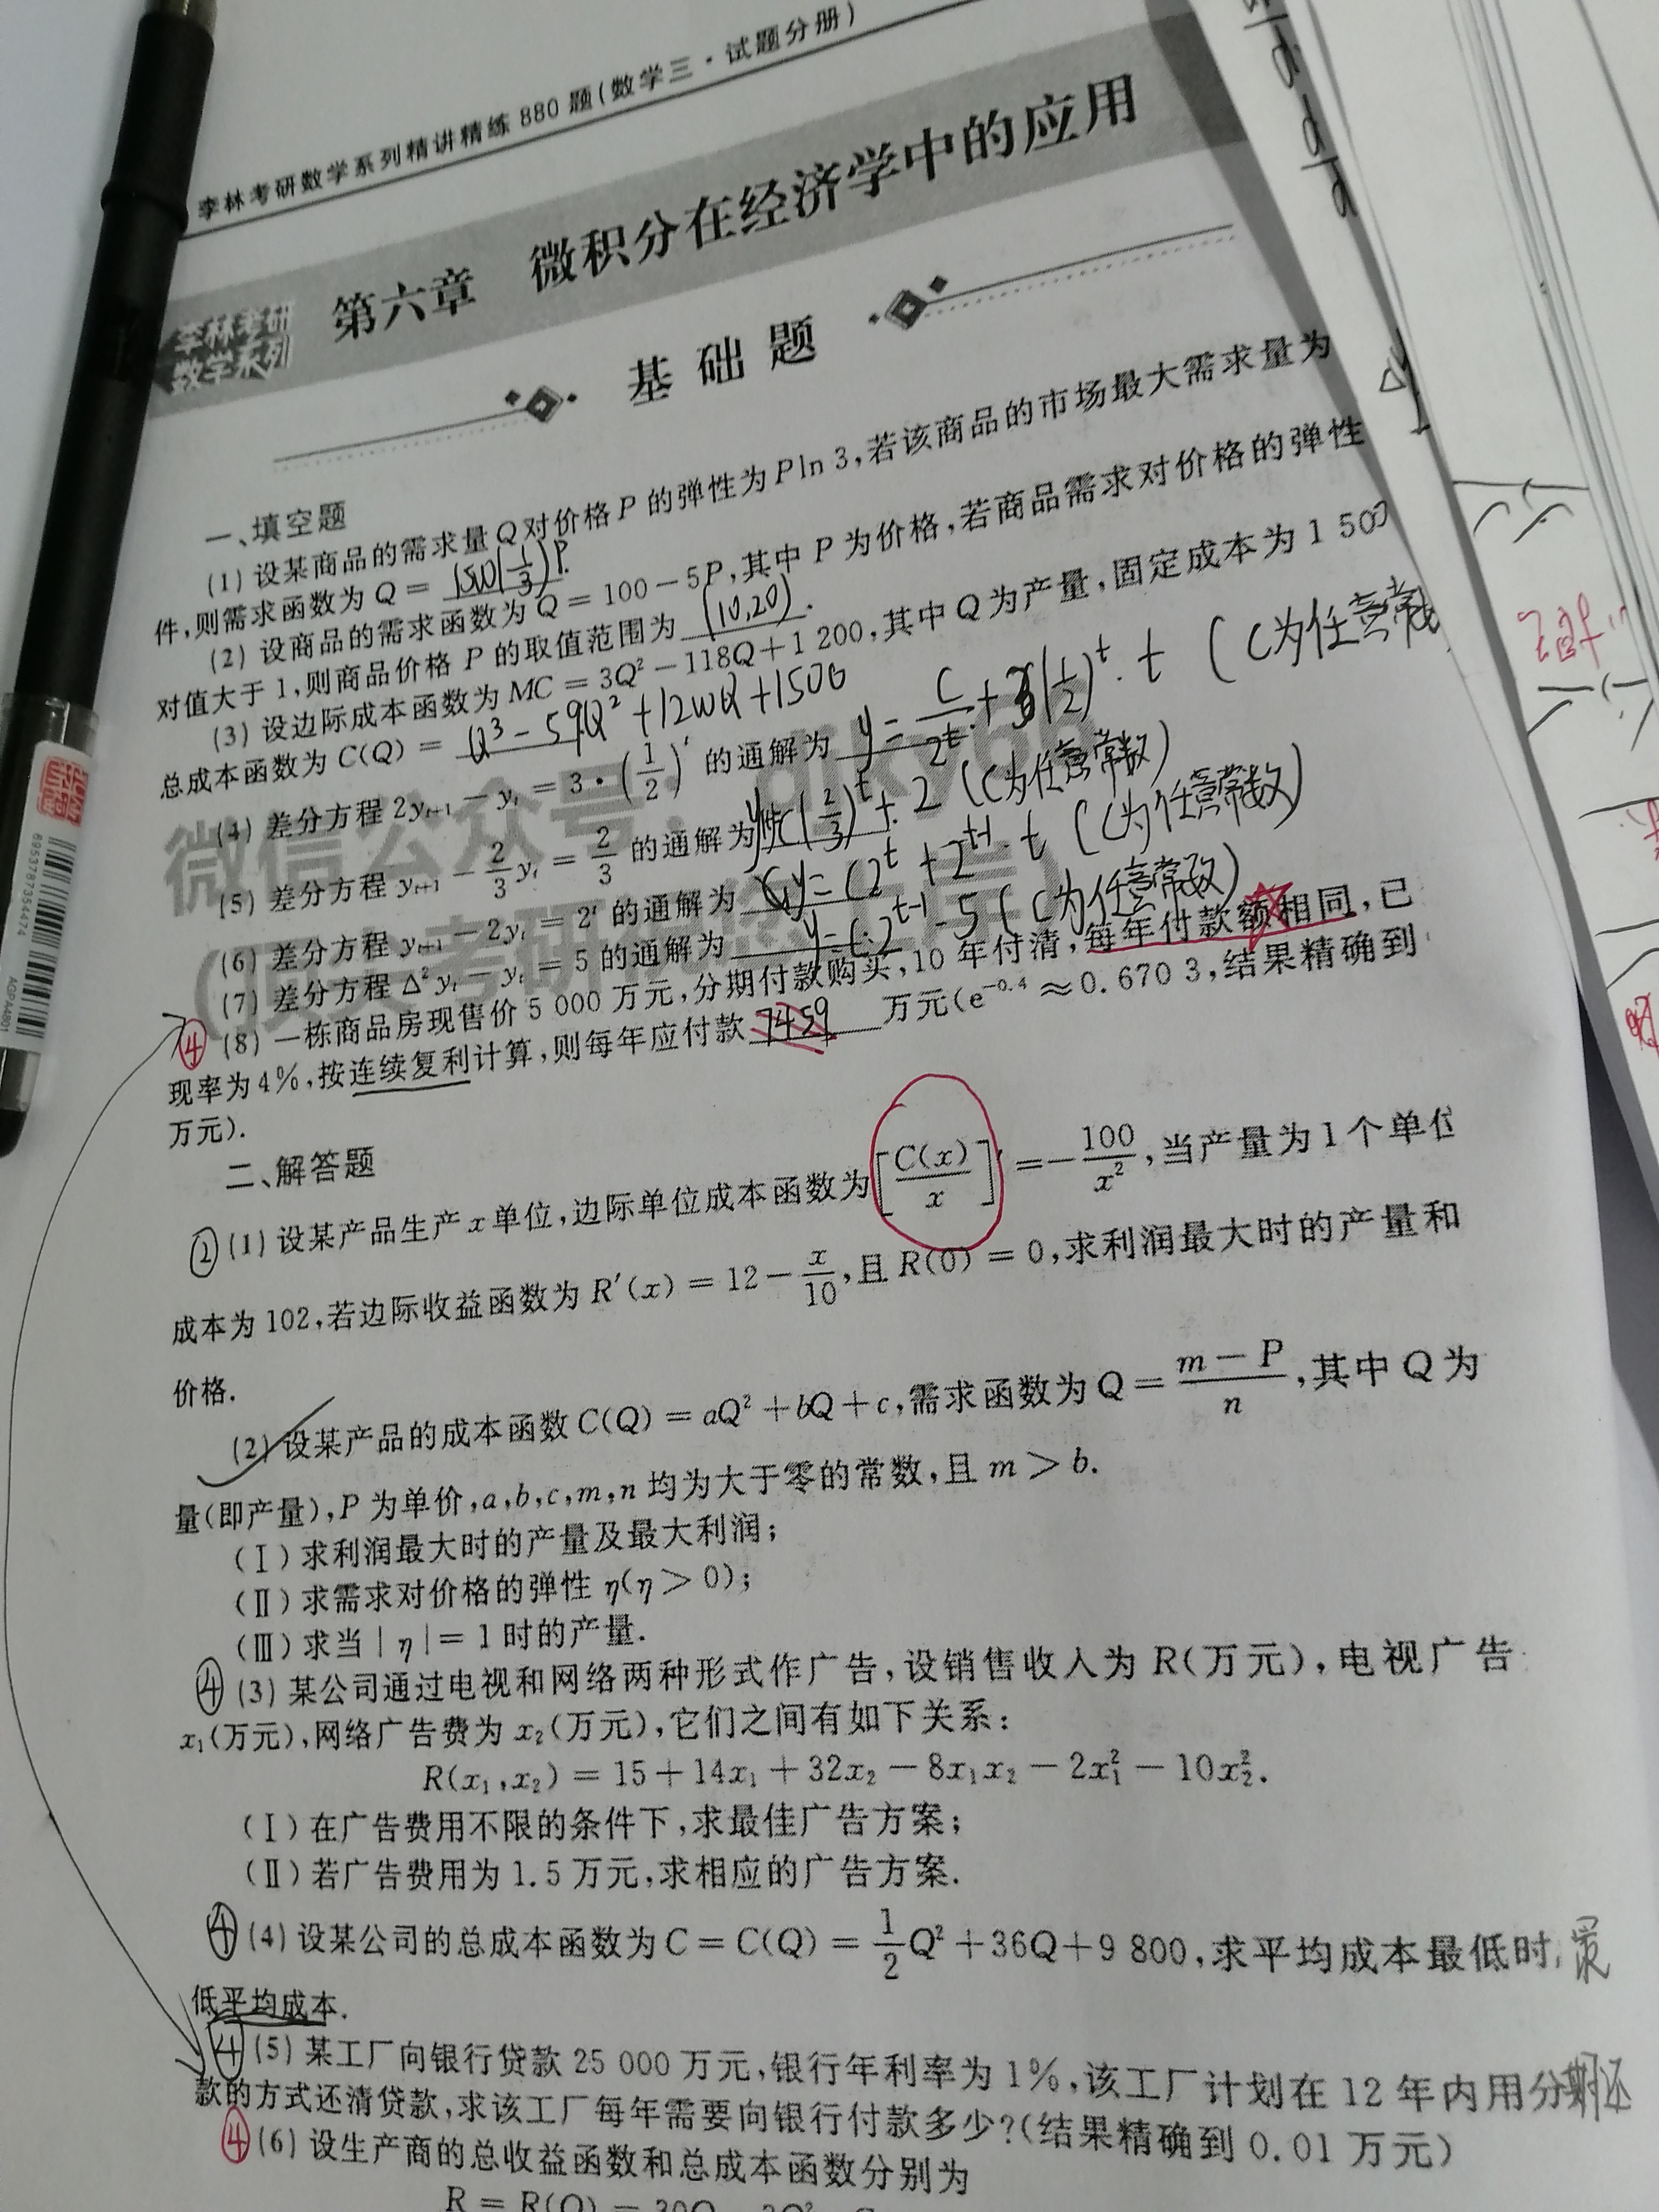 李林考研数学系列精讲精练880题(数学三·试题分册)
李林考研
数学系列
第六章 微积分在经济学中的应用
基础题
一、填空题
(1) 设某商品的需求量Q对价格P的弹性为Pln 3,若该商品的市场最大需求量为1 500
件,则需求函数为Q = 1500(1/3)^P.
(2) 设商品的需求函数为Q = 100 − 5P,其中P为价格,若商品需求对价格的弹性
对值大于1,则商品价格P的取值范围为 (10,20).
(3) 设边际成本函数为MC = 3Q² − 118Q + 1 200,其中Q为产量,固定成本为1 500
总成本函数为C(Q) = Q³ − 59Q² + 1200Q + 1500
(4) 差分方程 2y_{t+1} − y_t = 3·(1/2)^t 的通解为 y = C/2^t + 3(1/2)^t · t (C为任意常
(5) 差分方程 y_{t+1} − 2/3 y_t = 2/3 的通解为 y_t = C(2/3)^t + 2 (C为任意常数)
(6) 差分方程 y_{t+1} − 2y_t = 2^t 的通解为 y = C2^t + 2^{t-1}·t (C为任意常数)
(7) 差分方程 Δ²y_t − y_t = 5 的通解为 y = C·2^{t-1} − 5 (C为任意常数)
④ (8) 一栋商品房现售价5 000万元,分期付款购买,10年付清,每年付款额相同,已
现率为4%,按连续复利计算,则每年应付款 7459 万元(e^{-0.4} ≈ 0.670 3,结果精确到
万元).
二、解答题
② (1) 设某产品生产x单位,边际单位成本函数为[C(x)/x]′ = −100/x²,当产量为1个单位
成本为102,若边际收益函数为R′(x) = 12 − x/10,且R(0) = 0,求利润最大时的产量和
价格.
(2) 设某产品的成本函数C(Q) = aQ² + bQ + c,需求函数为Q = (m − P)/n,其中Q为
量(即产量),P为单价,a,b,c,m,n均为大于零的常数,且m > b.
(Ⅰ) 求利润最大时的产量及最大利润;
(Ⅱ) 求需求对价格的弹性η(η > 0);
(Ⅲ) 求当|η| = 1时的产量.
④ (3) 某公司通过电视和网络两种形式作广告,设销售收入为R(万元),电视广告
x₁(万元),网络广告费为x₂(万元),它们之间有如下关系:
R(x₁,x₂) = 15 + 14x₁ + 32x₂ − 8x₁x₂ − 2x₁² − 10x₂².
(Ⅰ) 在广告费用不限的条件下,求最佳广告方案;
(Ⅱ) 若广告费用为1.5万元,求相应的广告方案.
④ (4) 设某公司的总成本函数为C = C(Q) = 1/2 Q² + 36Q + 9 800,求平均成本最低时,
低平均成本.
④ (5) 某工厂向银行贷款25 000万元,银行年利率为1%,该工厂计划在12年内用分期还
款的方式还清贷款,求该工厂每年需要向银行付款多少?(结果精确到0.01万元)
④ (6) 设生产商的总收益函数和总成本函数分别为
6953787354474
AGPA4801